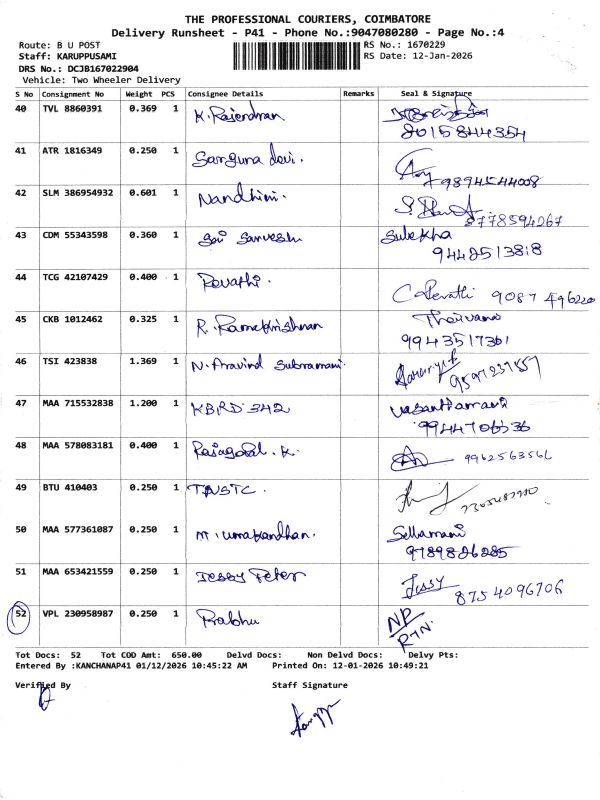 THE PROFESSIONAL COURIERS, COIMBATORE
Delivery Runsheet - P41 - Phone No.:9047080280 - Page No.:4
Route: B U POST
RS No.: 1670229
Staff: KARUPPUSAMI
RS Date: 12-Jan-2026
DRS No.: DCJB167022904
Vehicle: Two Wheeler Delivery
S No Consignment No Weight PCS Consignee Details Remarks Seal & Signature
40 TVL 8860391 0.369 1 K. Rajendran
8015844354
41 ATR 1816349 0.250 1 Sarguna devi.
9894544008
42 SLM 386954932 0.601 1 Nandhini.
9778594267
43 CDM 55343598 0.360 1 Sai Sarvesh Sulekha
9442513818
44 TCG 42107429 0.400 1 Revathi.
C. Revathi 9087496220
45 CKB 1012462 0.325 1 R. Ramakrishnan
9943517361
46 TSI 423838 1.369 1 N. Aravind Subramani.
9597237557
47 MAA 715532838 1.200 1 KBRD 342 vasanthamani
9944706536
48 MAA 578083181 0.400 1 Rajagopal. K.
9962563566
49 BTU 410403 0.250 1 TNSTC.
50 MAA 577361087 0.250 1 M. Umakandhan. Sellamani
9789826285
51 MAA 653421559 0.250 1 Jessy Peter Jessy
8754096706
52 VPL 230958987 0.250 1 Prabhu NP
RTN.
Tot Docs: 52 Tot COD Amt: 650.00 Delvd Docs: Non Delvd Docs: Delvy Pts:
Entered By :KANCHANAP41 01/12/2026 10:45:22 AM Printed On: 12-01-2026 10:49:21
Verified By Staff Signature